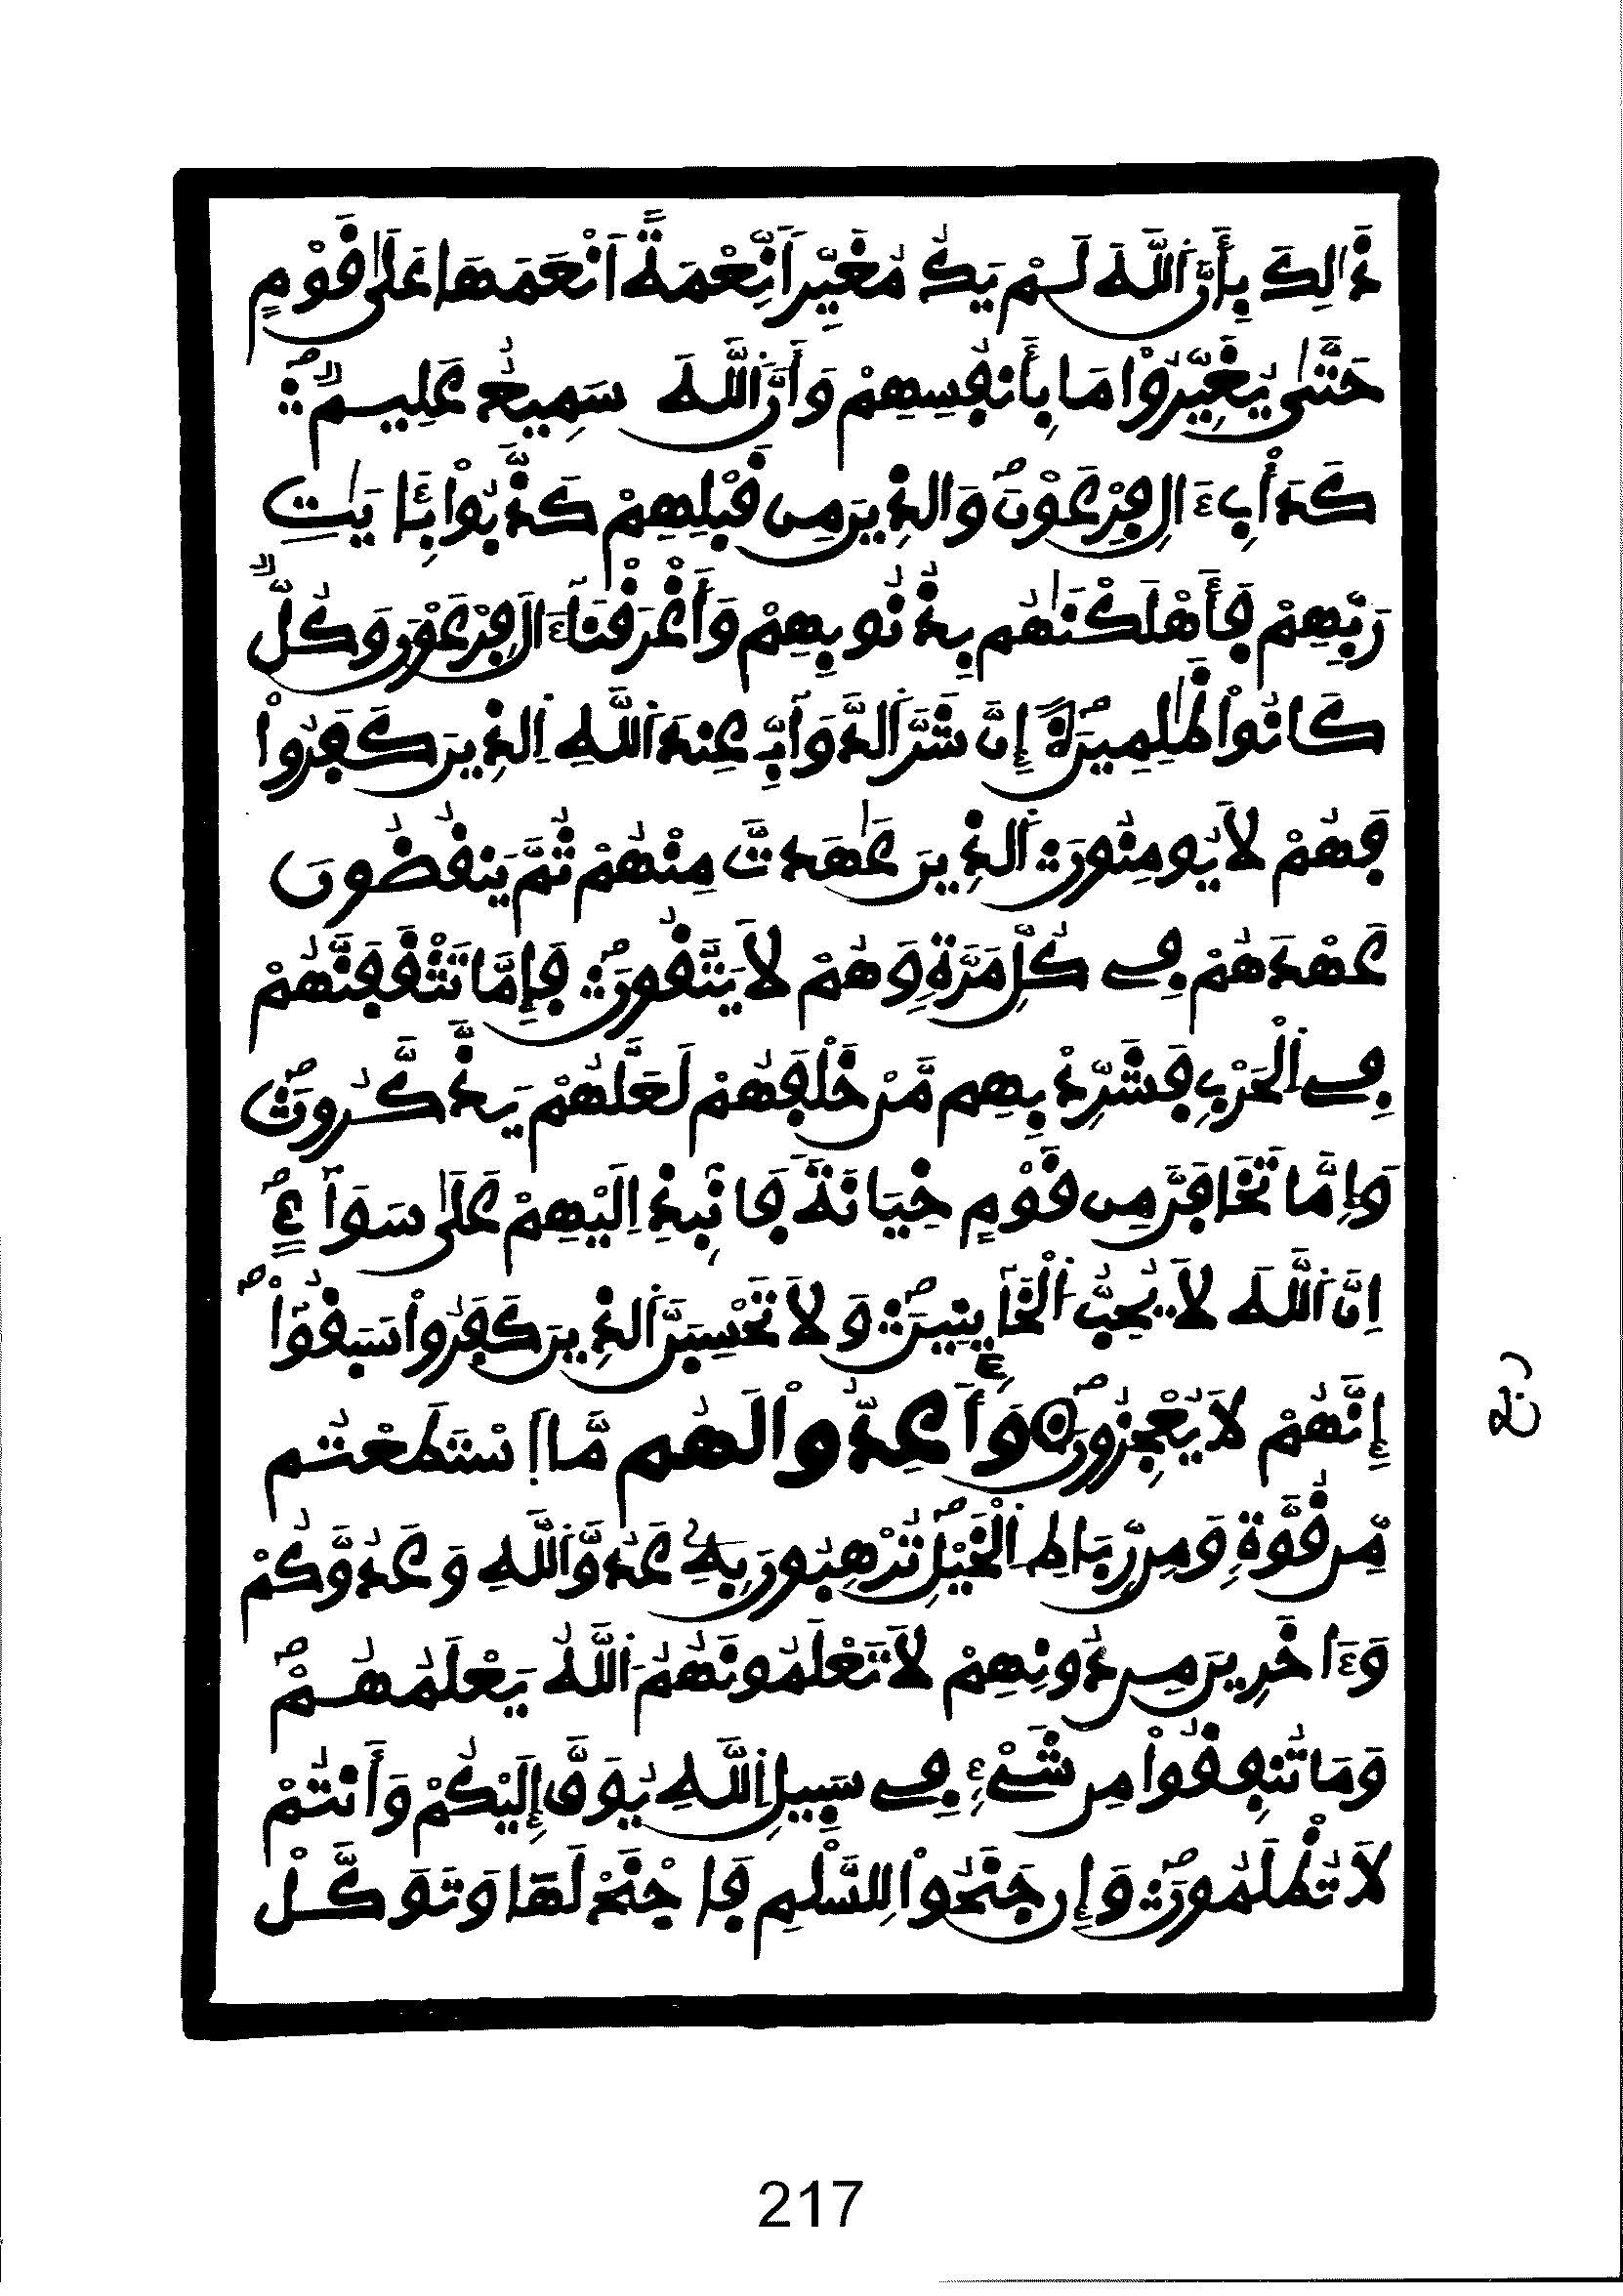 ذَٰلِكَ بِأَنَّ اَللَّهَ لَمْ يَكُ مُغَيِّراً نِّعْمَةً اَنْعَمَهَا عَلَىٰ قَوْمٍ
حَتَّىٰ يُغَيِّرُواْ مَا بِأَنفُسِهِمْ وَأَنَّ اَللَّهَ سَمِيعٌ عَلِيمٌ
كَدَأْبِ ءَالِ فِرْعَوْنَ وَالذِينَ مِن قَبْلِهِمْ كَذَّبُواْ بِـَٔايَٰتِ
رَبِّهِمْ فَأَهْلَكْنَٰهُم بِذُنُوبِهِمْ وَأَغْرَقْنَا ءَالَ فِرْعَوْنَ وَكُلٌّ
كَانُواْ ظَٰلِمِينَ إِنَّ شَرَّ اَلدَّوَآبِّ عِندَ اَللَّهِ اِلذِينَ كَفَرُواْ
فَهُمْ لَا يُومِنُونَ اَلذِينَ عَٰهَدتَّ مِنْهُمْ ثُمَّ يَنقُضُونَ
عَهْدَهُمْ فِے كُلِّ مَرَّةٍ وَهُمْ لَا يَتَّقُونَ فَإِمَّا تَثْقَفَنَّهُمْ
فِے اِلْحَرْبِ فَشَرِّدْ بِهِم مَّنْ خَلْفَهُمْ لَعَلَّهُمْ يَذَّكَّرُونَ
وَإِمَّا تَخَافَنَّ مِن قَوْمٍ خِيَانَةً فَانۢبِذِ اِلَيْهِمْ عَلَىٰ سَوَآءٍ
اِنَّ اَللَّهَ لَا يُحِبُّ اُلْخَآئِنِينَ وَلَا تَحْسِبَنَّ اَلذِينَ كَفَرُواْ سَبَقُوٓاْ
إِنَّهُمْ لَا يُعْجِزُونَ وَأَعِدُّواْ لَهُم مَّا اَسْتَطَعْتُم
مِّن قُوَّةٍ وَمِن رِّبَاطِ اِلْخَيْلِ تُرْهِبُونَ بِهِۦ عَدُوَّ اَللَّهِ وَعَدُوَّكُمْ
وَءَاخَرِينَ مِن دُونِهِمْ لَا تَعْلَمُونَهُمُ اَللَّهُ يَعْلَمُهُمْ
وَمَا تُنفِقُواْ مِن شَےْءٍ فِے سَبِيلِ اِللَّهِ يُوَفَّ إِلَيْكُمْ وَأَنتُمْ
لَا تُظْلَمُونَ وَإِن جَنَحُواْ لِلسَّلْمِ فَاجْنَحْ لَهَا وَتَوَكَّلْ
ربع
217